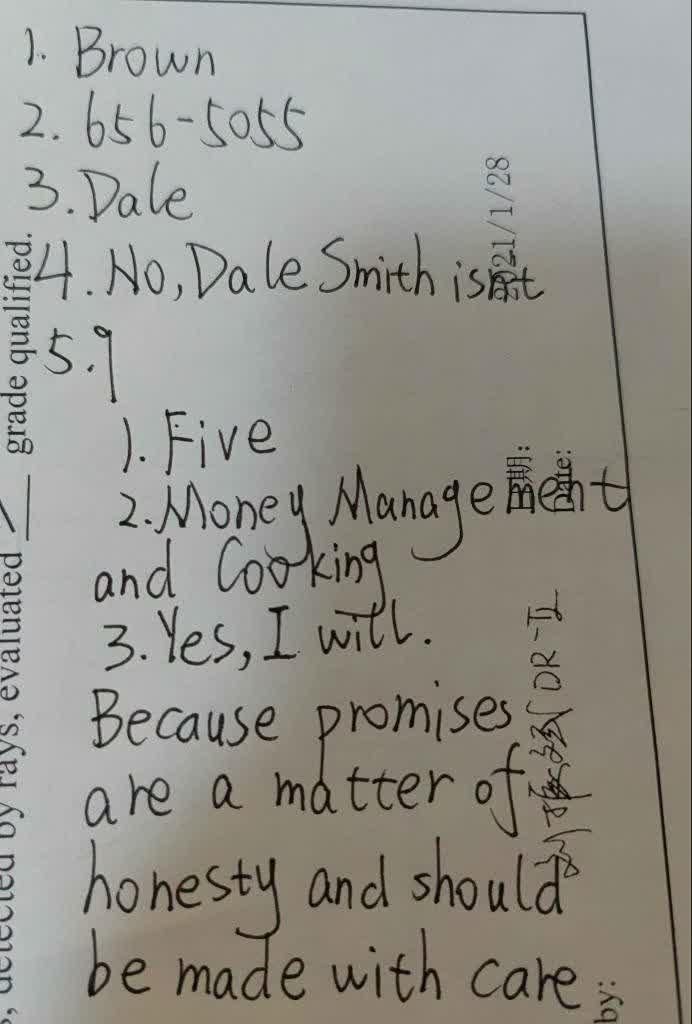 1. Brown
2. 656-5055
3. Dale
4. No, Dale Smith isn't
5. 9
1. Five
2. Money Management
and Cooking
3. Yes, I will.
Because promises
are a matter of
honesty and should
be made with care
grade qualified.
, detected by rays, evaluated
21/1/28
日期:
Date:
DR-II
by: